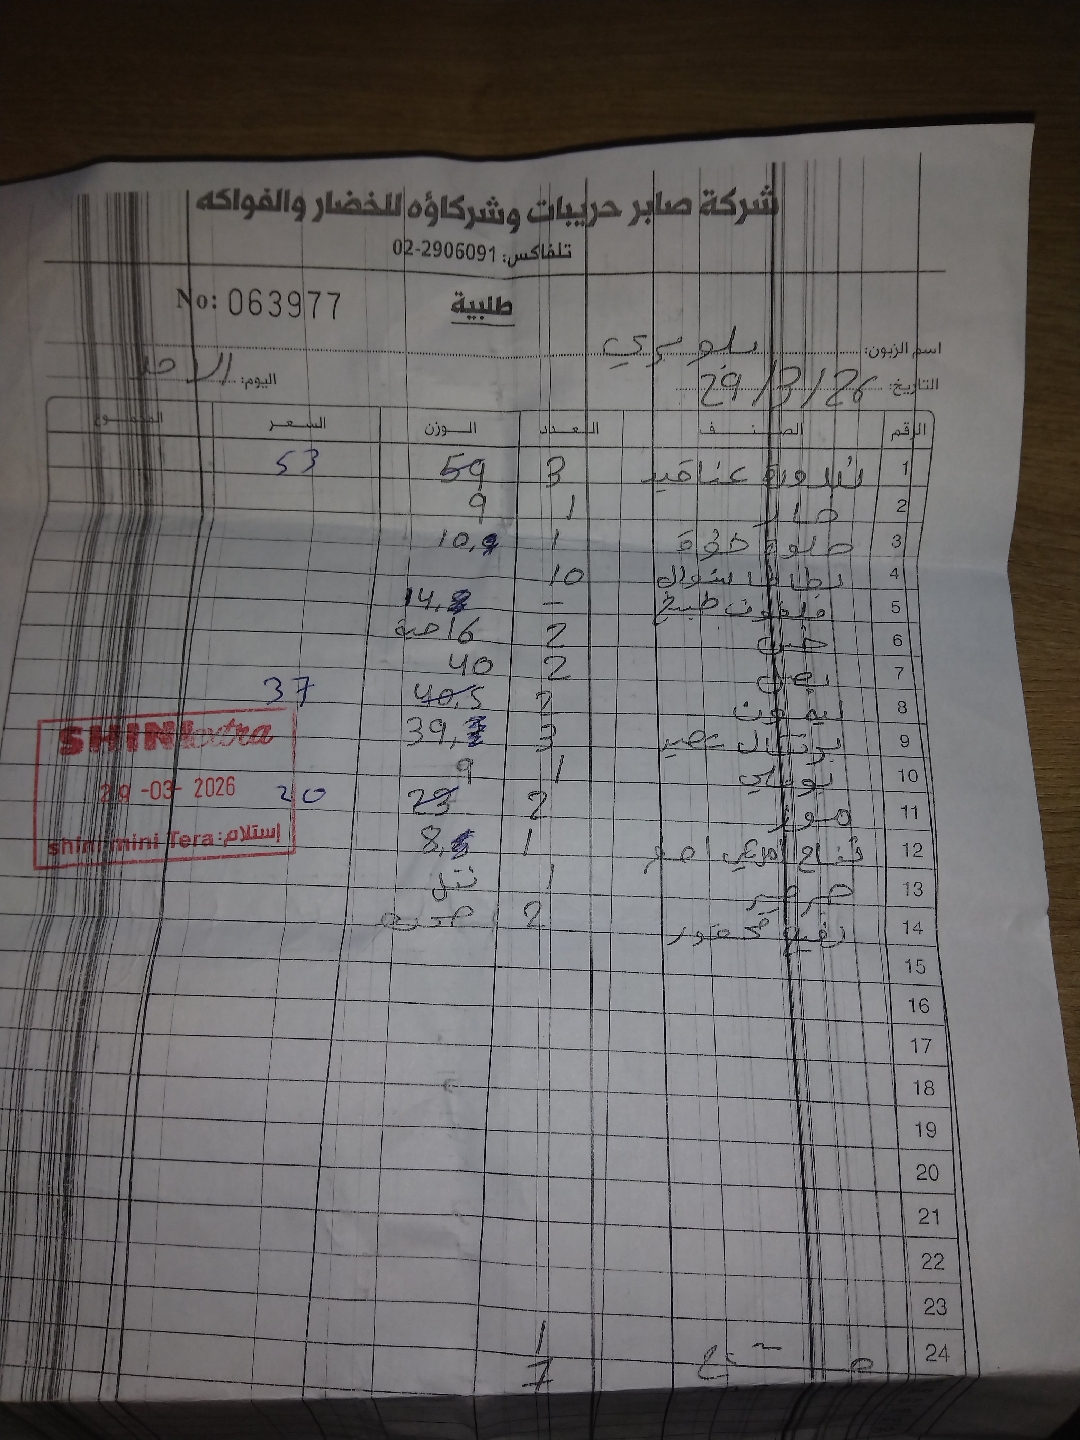 شركة صابر حريبات وشركاؤه للخضار والفواكه
تلفاكس: 02-2906091
No: 063977
طلبية
اسم الزبون:
التاريخ: 29/3/26
اليوم: الاحد
الرقم الصنف العدد الوزن السعر المجموع
1 بندورة عناقيد 3 59 53
2 خيار 1 9
3 حلوة 1 10,9
4 بطاطا شوال 10
5 طبيخ - 14,8
6 خس 2 16 حبة
7 بصل 2 40
8 ليمون 2 40,5 37
9 برتقال عصير 3 39,3
10 بوملي 1 9
11 موز 2 23 20
12 تفاح اصفر 1 8,5
13 1
14 2
15
16
17
18
19
20
21
22
23
24 1
7
SHINI extra
29-03-2026
إستلام: shini mini Tera